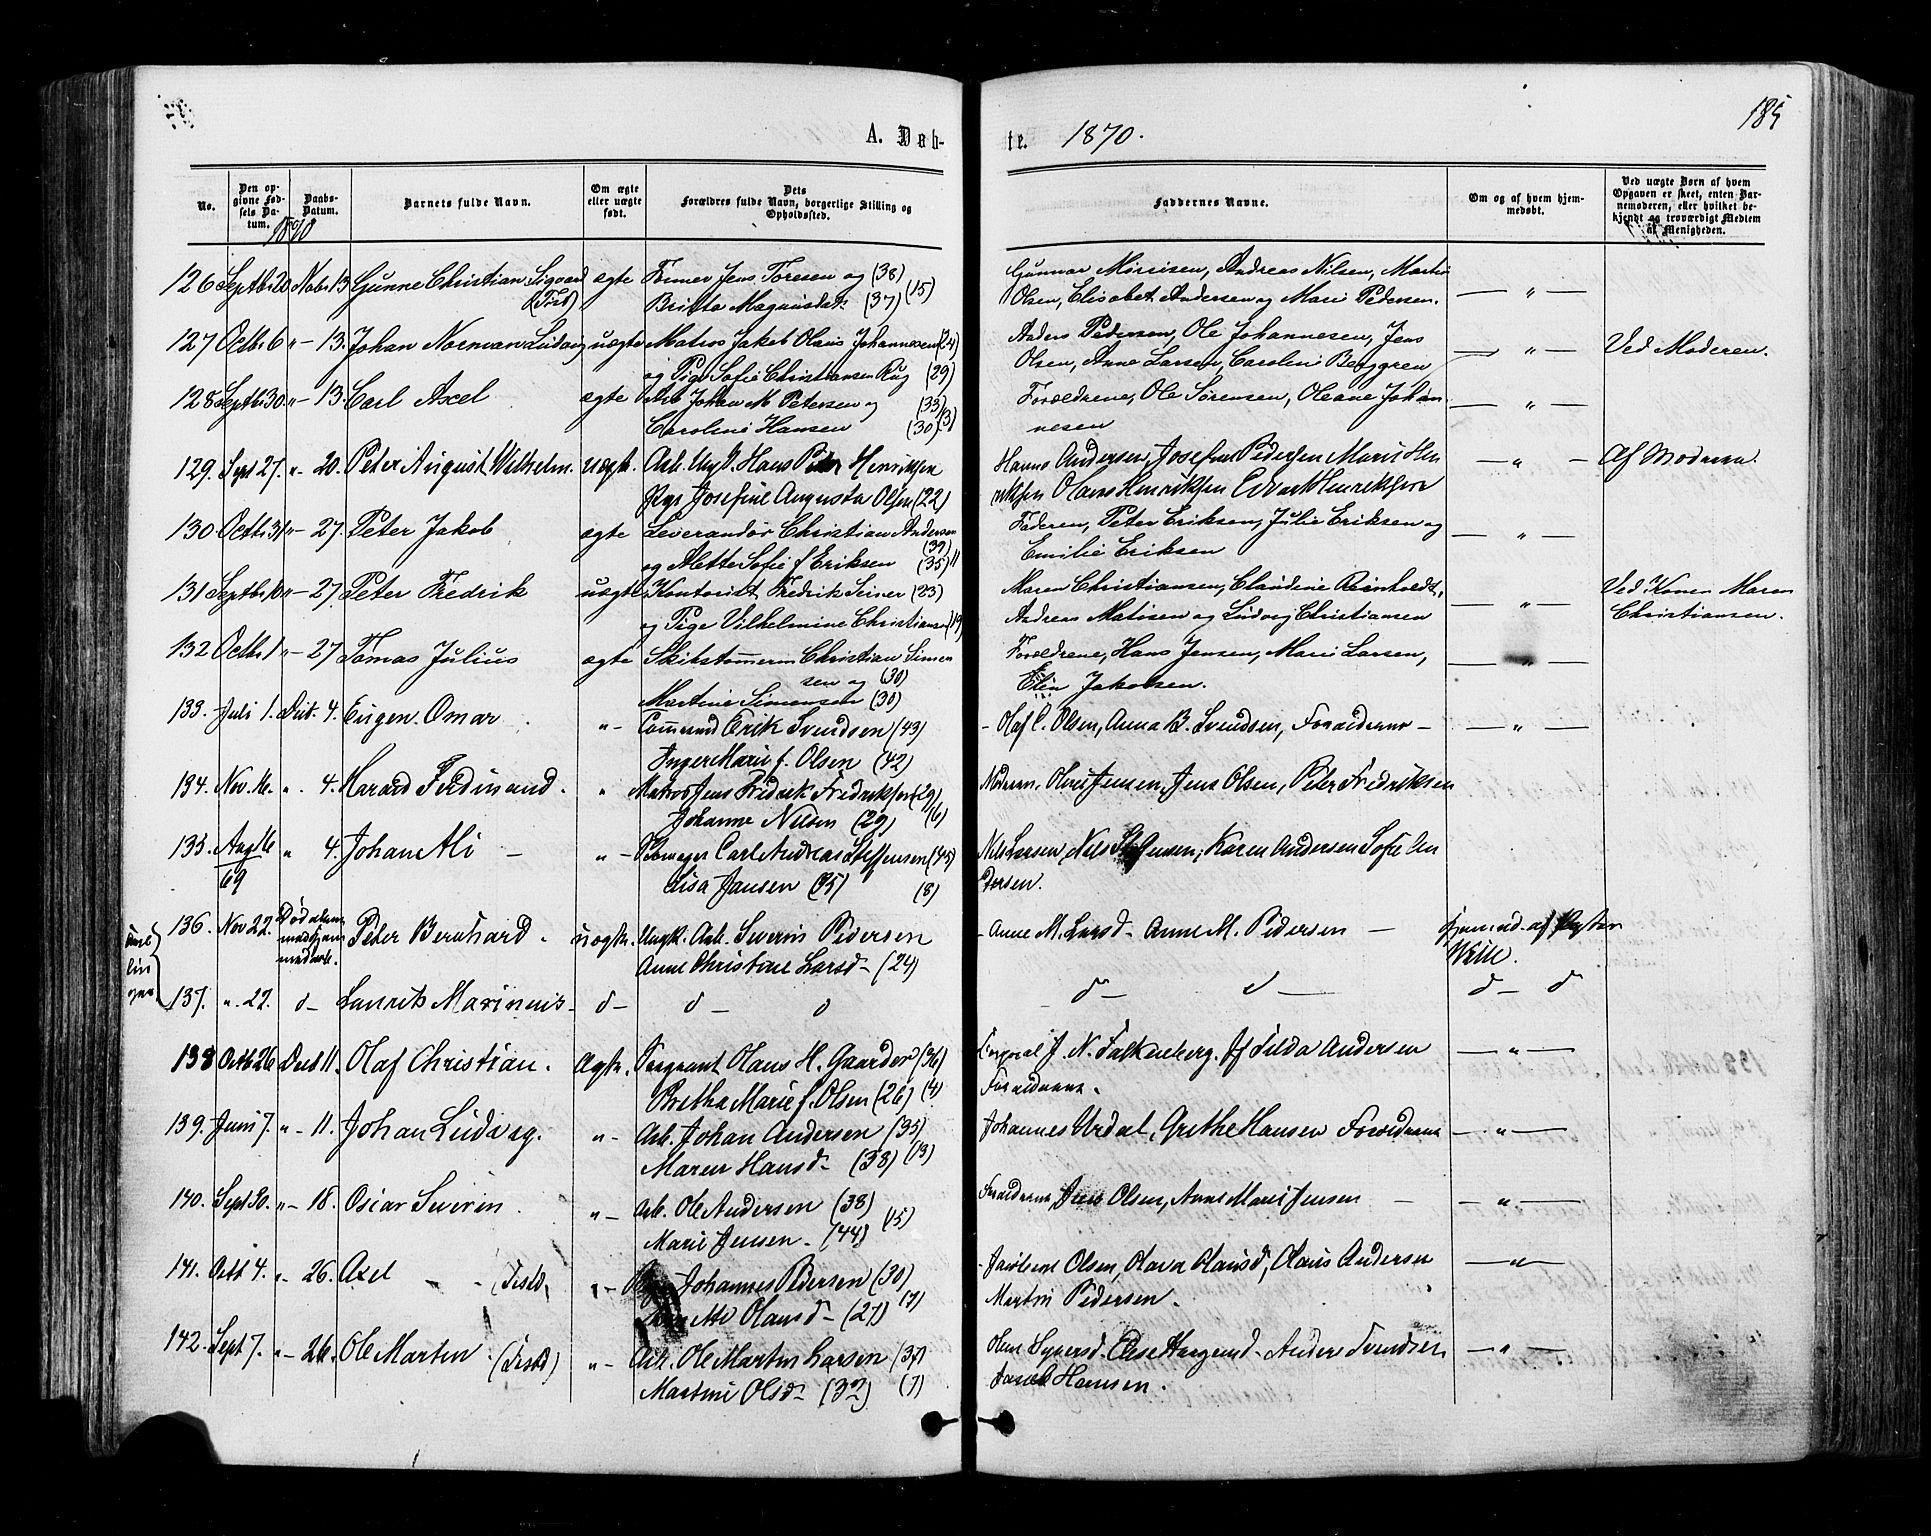 185
A. Døb-
te. 1870.
No.
Den op-
givne Fød-
sels Da-
tum.
Daabs-
Datum.
Barnets fulde Navn.
Om ægte
eller uægte
født.
Dets
Forældres fulde Navn, borgerlige Stilling og
Opholdssted.
Faddernes Navne.
Om og af hvem hjem-
medøbt.
Ved uægte Børn af hvem
Opgaven er skeet, enten Bar-
nemoderen, eller hvilket be-
kjendt og troværdigt Medlem
af Menigheden.
1870
126 Septbr 20 Novbr 13 Gunne Christian Sigvard ægte Jens Toresen og (38)
Britta Magnusdatr (37) (15)
Gunnar Andreas Nilsen, Martin
Olsen, Elisabet Andersen og Marie Pedersen. — " —
127 Octbr 6 " — 13. Johan Norman Ludvig uægte Matros Jakob Olaus Johannesen (24)
og Pige Sofie Christiansen Rug (29)
Anders Pedersen, Ole Johannesen, Jens
Olsen, Anne Larsen, Caroline Berggren — " — Ved Moderen.
128 Septbr 30. " — 13. Carl Axel ægte Arb Johan M Petersen og (33)
Caroline Hansen (30) (3)
Forældrene, Ole Sørensen, Oleane Johan-
nesen — " —
129. Sept 27. " — 20. Peter August Wilhelm. uægt. Arb. Ungk. Hans Peter Henriksen
Pige Josefine Augusta Olsen (22)
Hanna Andersen, Josefine Pedersen Marie Hen
riksen Olaus Henriksen Edvard Henriksen — " — Af Moderen.
130 Octbr 31 " — 27. Peter Jakob ægte Leverandør Christian Andersen
(39)
og Mette Sofie f Eriksen (35) 11
Faderen, Peter Eriksen, Julie Eriksen og
Emilie Eriksen — " —
131 Septbr 10 " — 27 Peter Fredrik uægte Kontorist Fredrik Seiner (23)
og Pige Vilhelmine Christiansen (19)
Maren Christiansen, Claudine Reinholdt,
Andreas Matisen og Ludvig Christiansen — " — Ved Konen Maren
Christiansen.
132 Octbr 1 " — 27 Tomas Julius ægte Skibstømerm Christian Simon
sen og (30)
Martine Simonsen (30)
Forældrene, Hans Jensen, Marie Larsen,
Elin Jakobsen. — " —
133. Juli 1. 4. Eugen Omar " - Erik Svendsen (43)
Inger Marie f. Olsen (42)
- Olaf C. Olsen, Anna B. Svendsen, Forældrene — — " —
134. Nov. 16. " . 4. Harald Ferdinand. " Matros Jens Fredrik Fredriksen (29)
Johanne Nilsen (29) (6)
Moderen, Jensen, Jens Olsen, Peter Fredriksen
135. Aug 16 " 4. Johan Ali — " — Carl Andreas Steffensen (45)
69
Lisa Jansen (35) (8)
Nils Larsen, Nils Karen Andersen Sofie An
dersen.
136. Nov 22. Peter Bernhard. uægte. Ungk. Arb. Severin Pedersen
Anne Christine Larsd — (24)
- Anne M. Larsd - Anne M. Pedersen — af
Wille.
137. " . 22. d — Laurits Marinius — d — d — d
d — d — d — d
138 Octbr 26 Decb 11. Olaf Christian. Ægte. Sergeant Olaus H. Gaarder (36)
Bertha Marie f. Olsen (26) (4)
Corporal J. N. Falkenberg. Tilda Andersen
Forældrene. — " —
139. Juni 7. " — 11. Johan Ludvig. " — Arb. Johan Andersen (35)
Maren Hansd — (38) (13)
Johannes Urdal, Grethe Hansen Forældrene — " —
140. Sept 30. " — 18. Oscar Severin. " — Arb. Ole Andersen (38)
Marie Jensen. (44) (15)
Forældrene Jens Olsen, Anne Marie Jensen — " —
141. Octb 4. " — 26. Axel " — Johannes Pedersen (30)
Olausd — (27) (7)
- Jacobine Olsen, Olava Olausd, Olaus Andersen
Martin Pedersen. — " —
142. Sept 7. " — 26. Ole Martin. " — Arb. Ole Martin Larsen (34)
Martine Olsd — (37) (7)
Else Anders Svendsen
Jacob Hansen. — " —